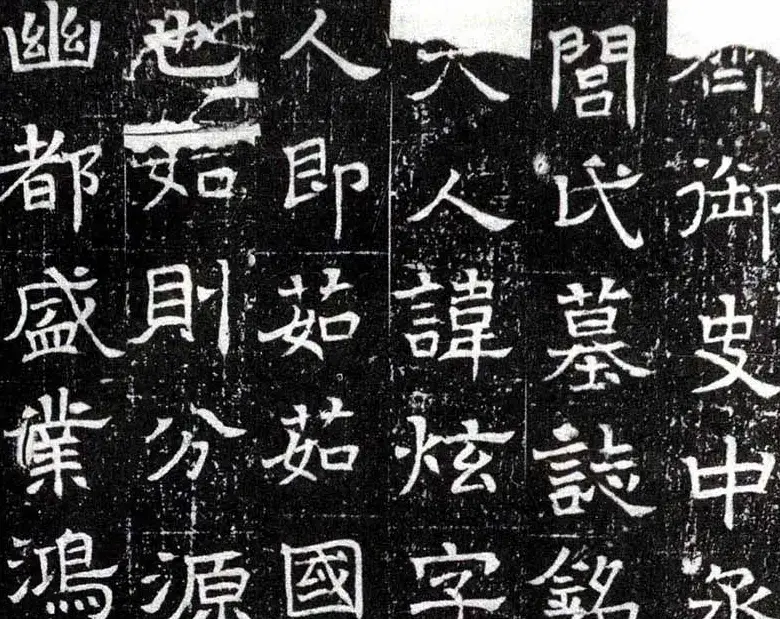 齊御史中丞
閭氏墓誌銘
夫人諱炫字
人即茹茹國
也如則分源
幽都盛業鴻